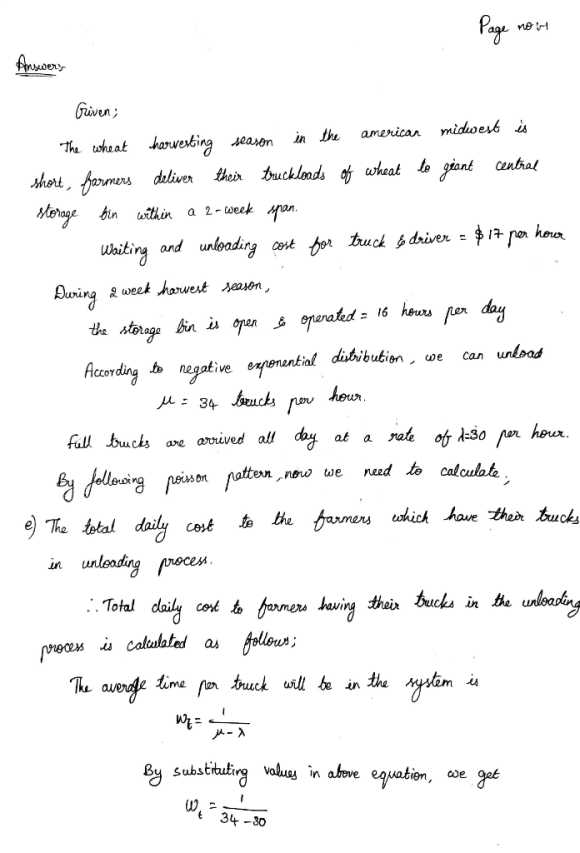 Page no:-1
Answer:-
Given;
The wheat harvesting season in the american midwest is
short, farmers deliver their truckloads of wheat to giant central
storage bin within a 2-week span.
Waiting and unloading cost for truck & driver = $17 per hour
During 2 week harvest season,
the storage bin is open & operated = 16 hours per day
According to negative exponential distribution, we can unload
μ = 34 trucks per hour.
Full trucks are arrived all day at a rate of λ=30 per hour.
By following poisson pattern, now we need to calculate;
e) The total daily cost to the farmers which have their trucks
in unloading process.
∴ Total daily cost to farmers having their trucks in the unloading
process is calculated as follows;
The average time per truck will be in the system is
Wt = 1 / μ - λ
By substituting values in above equation, we get
Wt = 1 / 34 - 30